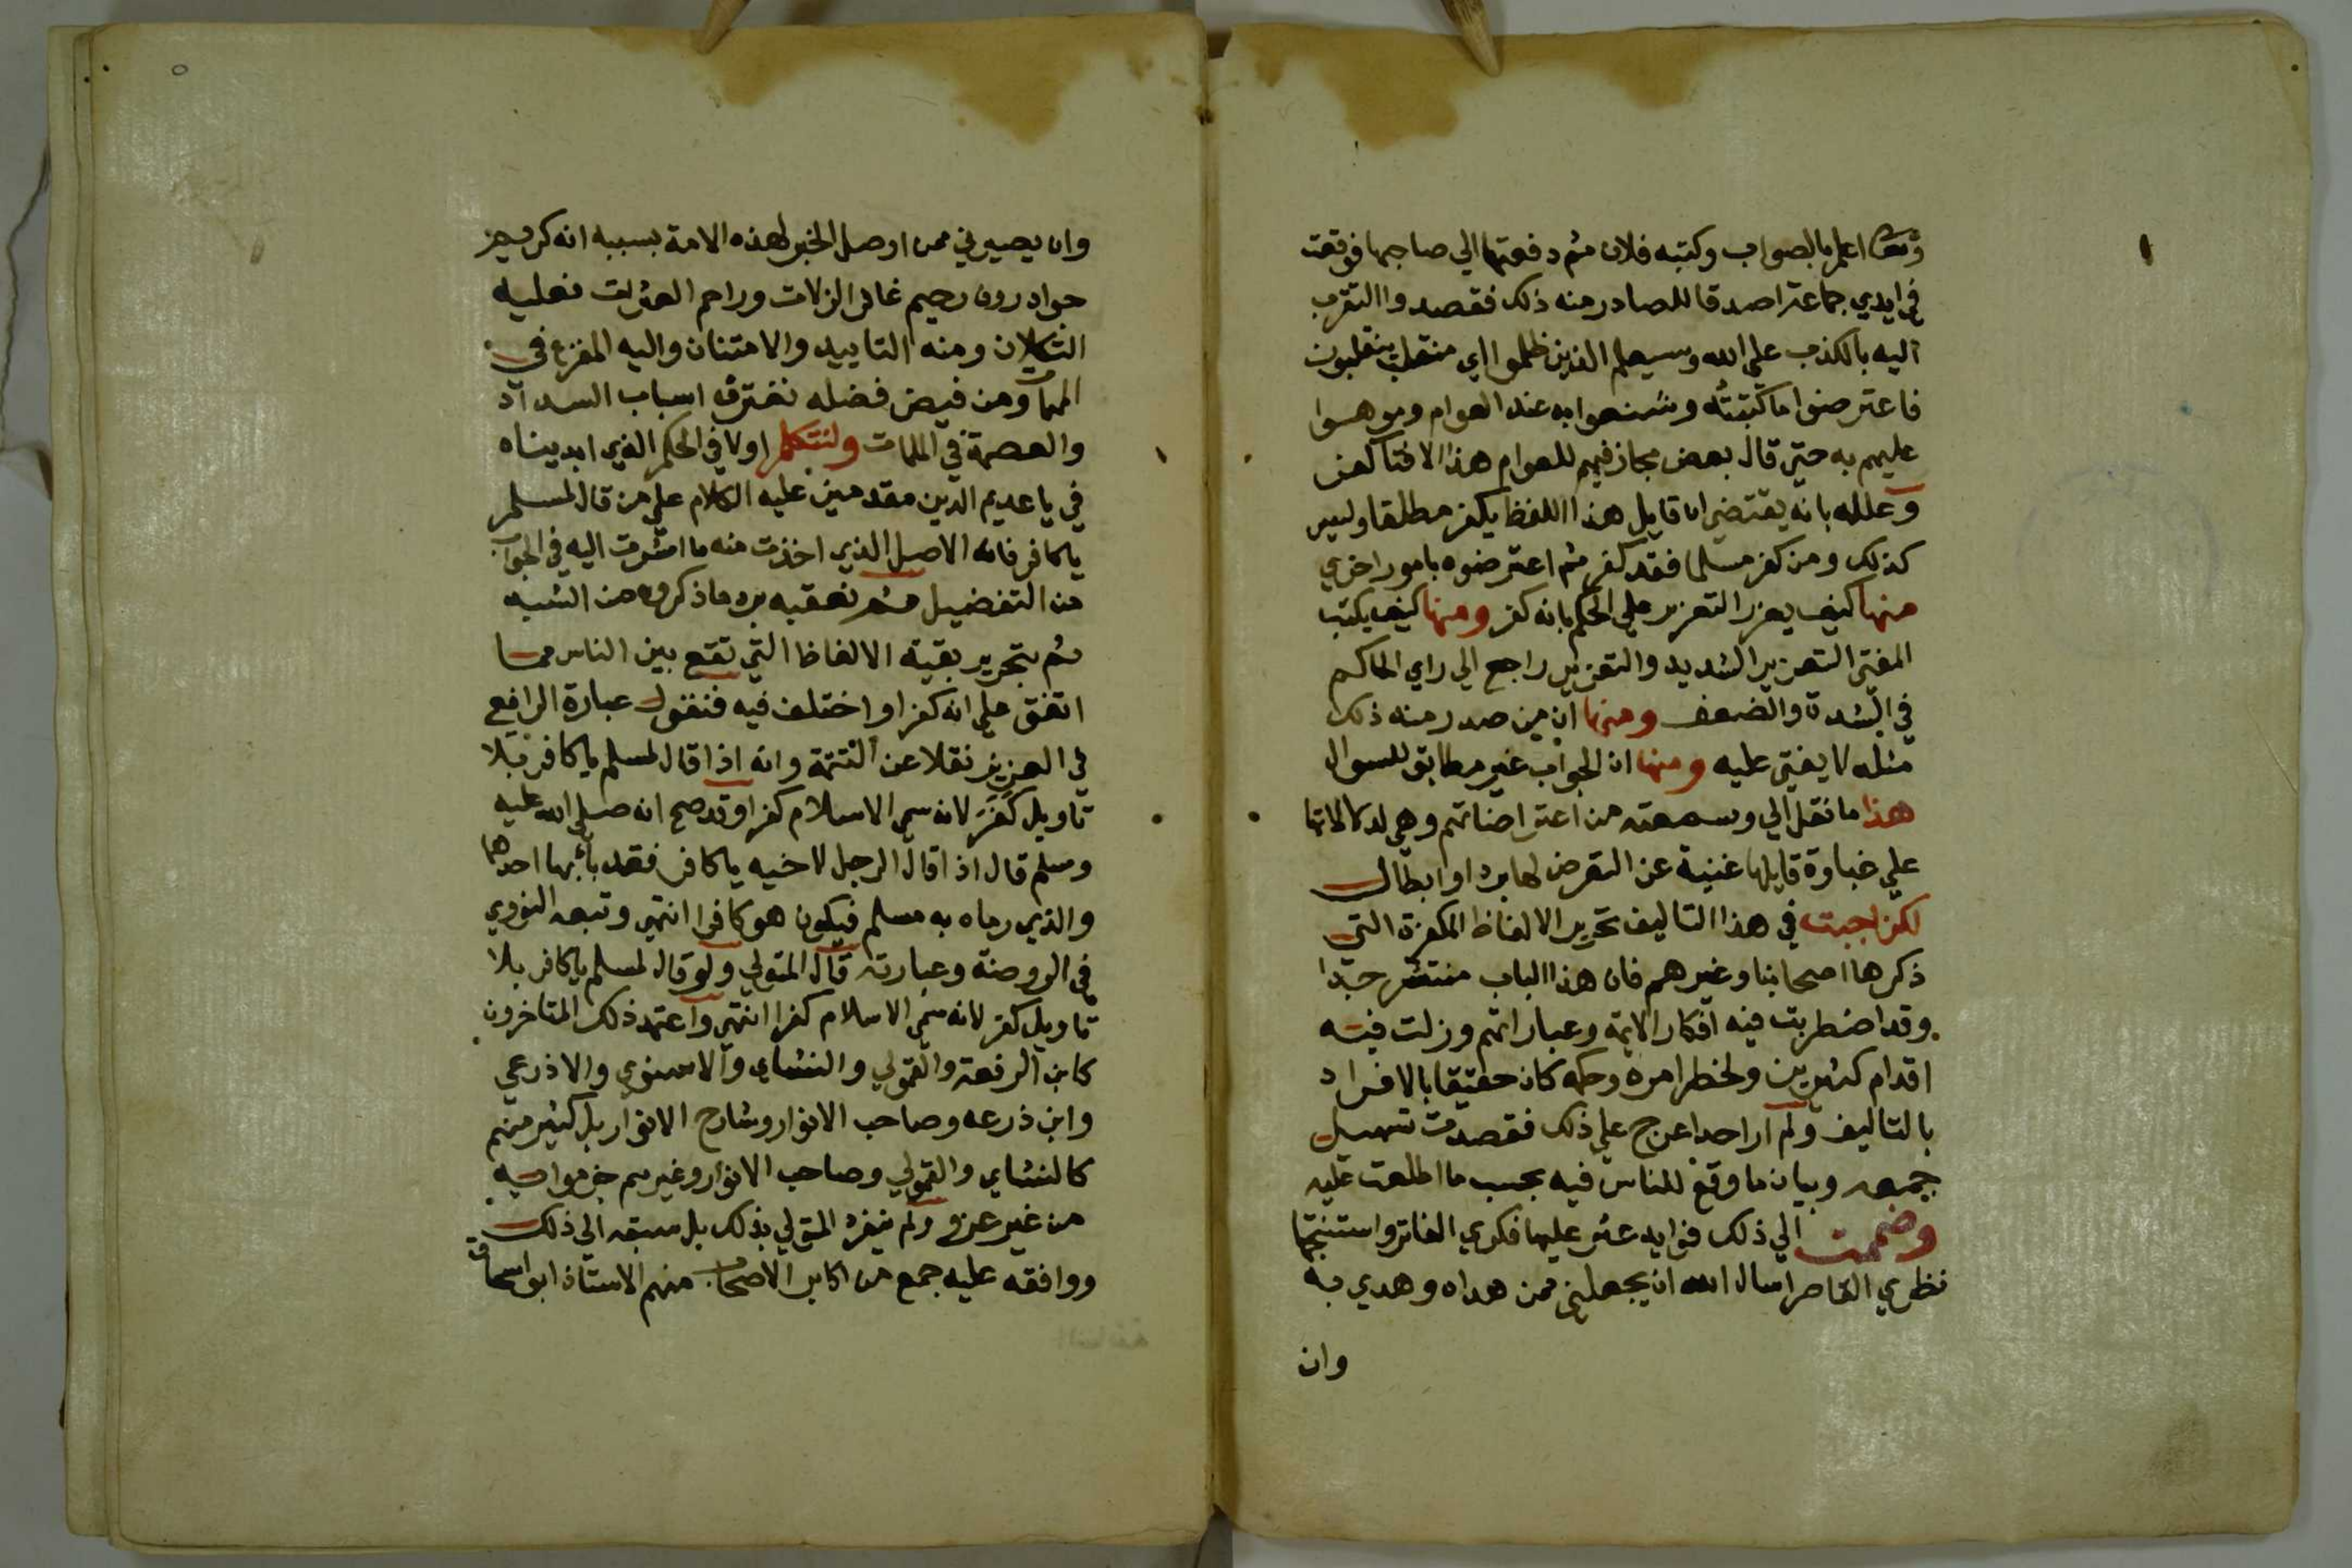 وتعالى اعلم بالصواب وكتبه فلان ثم دفعتها الي صاحبها فوقعت
في ايدي جماعة اصدقا للصادر منه ذلك فقصدوا التقرب
اليه بالكذب علي الله وسيعلم الذين ظلموا اي منقلب ينقلبون
فاعترضوا ما كتبتُه وشنعوا به عند العوام وموهوا
عليهم به حتي قال بعض مجازفيهم للعوام هذا الافتا كفر
وعلله بانه يقتضي ان قايل هذا اللفظ يكفر مطلقا وليس
كذلك ومن كفر مسلما فقد كفر ثم اعترضوه بامور اخري
منها كيف يعزر التعزير علي الحكم بانه كفر ومنها كيف يكتب
المفتي التعزير الشديد والتعزير راجع الي راي الحاكم
في الشدة والضعف ومنها ان من صدر منه ذلك
مثله لا يفتي عليه ومنها ان الجواب غير مطابق للسوال
هذا ما نقل الي وسمعته من اعتراضاتهم وهي لدلالاتها
علي غباوة قايلها غنية عن التعرض لها برد او ابطال
لكن اجبت في هذا التاليف تحرير الالفاظ المكفرة التي
ذكرها اصحابنا وغيرهم فان هذا الباب منتشر جدا
وقد اضطربت فيه افكار الايمة وعباراتهم وزلت فيه
اقدام كثيرين ولخطر امره وحكمه كان حقيقا بالافراد
بالتاليف ولم ار احدا عرج علي ذلك فقصدت تسهيل
جمعه وبيان ما وقع للناس فيه بحسب ما اطلعت عليه
وضممت الي ذلك فوايد عثر عليها فكري الفاتر واستنتجها
نظري القاصر اسال الله ان يجعلني ممن هداه وهدي به
وان
وان يصيرني ممن اوصل الخير لهذه الامة بسببه انه كريم
جواد رووف رحيم غافر الزلات وراحم العثرات فعليه
التكلان ومنه التاييد والامتنان واليه المفزع في
المهمات ومن فيض فضله نغترف اسباب السداد
والعصمة في الملمات ولنتكلم اولا في الحكم الذي ابديناه
في يا عديم الدين مقدمين عليه الكلام علي من قال لمسلم
يا كافر فانه الاصل الذي اخذت منه ما اشرت اليه في الجواب
من التفضيل ثم نعقبه برد ما ذكروه من الشبه
ثم بتحرير بقية الالفاظ التي تقع بين الناس مما
اتفق علي انه كفر او اختلف فيه فنقول عبارة الرافعي
في العزيز نقلا عن التتمة وانه اذا قال لمسلم يا كافر بلا
تاويل كَفَرَ لانه سمي الاسلام كفرا وقد صح انه صلي الله عليه
وسلم قال اذا قال الرجل لاخيه يا كافر فقد باء بها احدهما
والذي رماه به مسلم فيكون هو كافرا انتهي وتبعه النووي
في الروضة وعبارته قال المتولي ولو قال لمسلم يا كافر بلا
تاويل كفر لانه سمي الاسلام كفرا انتهي واعتمد ذلك المتاخرون
كابن الرفعة والقمولي والنشاي والاسنوي والاذرعي
وابن زرعه وصاحب الانوار وشارح الانوار بل كثير منهم
كالنشاي والقمولي وصاحب الانوار وغيرهم جزموا به
من غير عزو ولم ينفرد المتولي بذلك بل سبقه الي ذلك
ووافقه عليه جمع من اكابر الاصحاب منهم الاستاذ ابو اسحاق